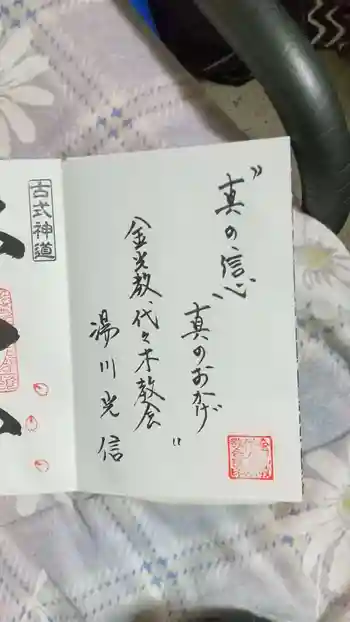 "真の信心
真のおかげ"
金光教代々木教会
湯川光信
古式神道